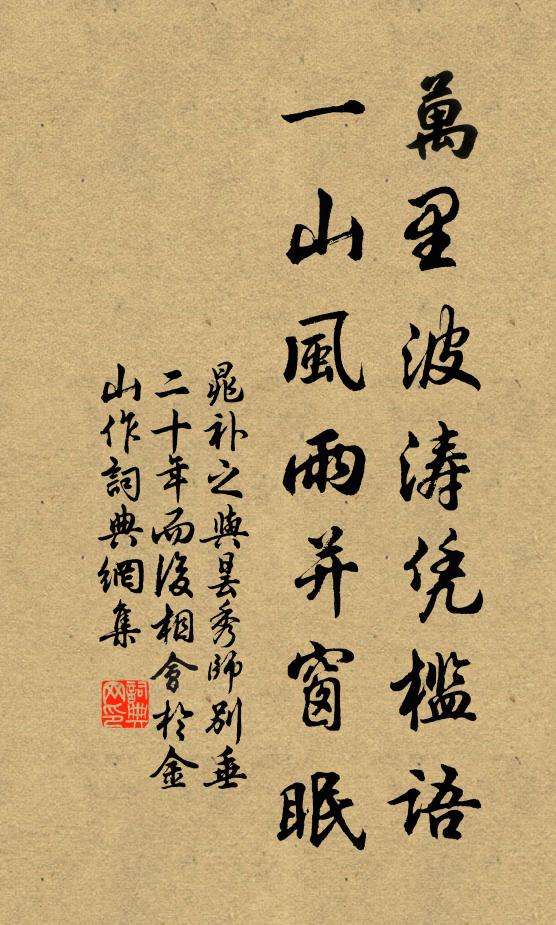 萬里波涛凭檻語
一山風雨并窗眠
晁补之與昙秀師别垂
二十年而後相會於金
山作詞典網集
詞典网印